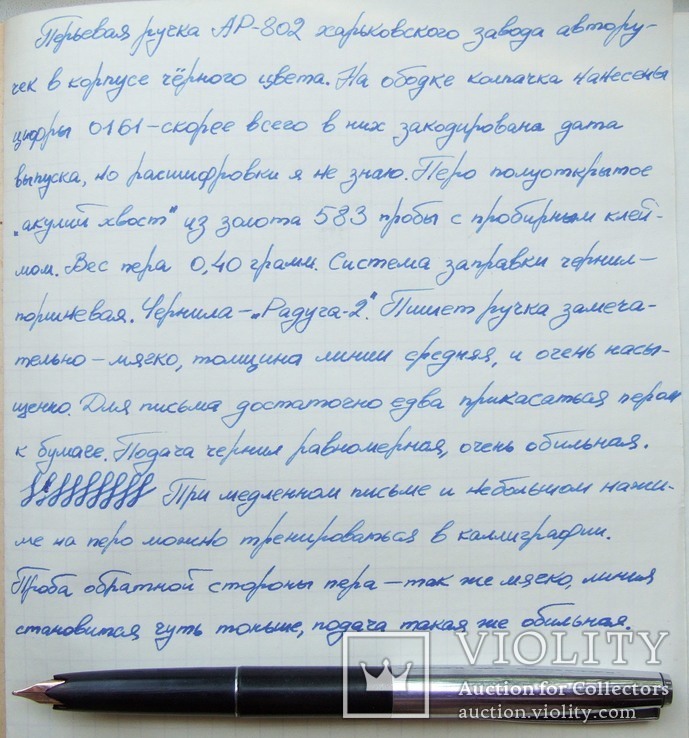 Перьевая ручка АР-802 харьковского завода автору-
чек в корпусе чёрного цвета. На ободке колпачка нанесены
цифры 0161-скорее всего в них закодирована дата
выпуска, но расшифровки я не знаю. Перо полуоткрытое
"акулий хвост" из золота 583 пробы с пробирным клей-
мом. Вес пера 0,40 грамм. Система заправки чернил-
поршневая. Чернила-"Радуга-2". Пишет ручка замеча-
тельно-мягко, толщина линии средняя, и очень насы-
щенно. Для письма достаточно едва прикасаться пером
к бумаге. Подача чернил равномерная, очень обильная.
При медленном письме и небольшом нажи-
ме на перо можно тренироваться в каллиграфии.
Проба обратной стороны пера-так же мягко, линия
становится чуть тоньше, подача такая же обильная.
VIOLITY
Auction for Collectors
auction.violity.com